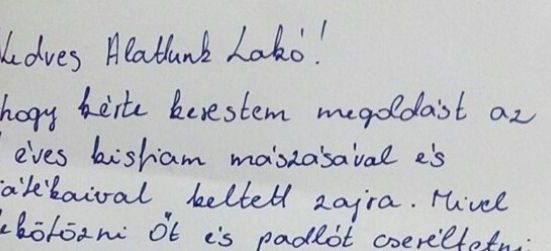 Kedves Alattunk Lakó!
hogy kérte kerestem megoldást az
éves kisfiam mászásával és
átékaival keltett zajra. Mivel
ekötözni Őt és padlót cseréltetni